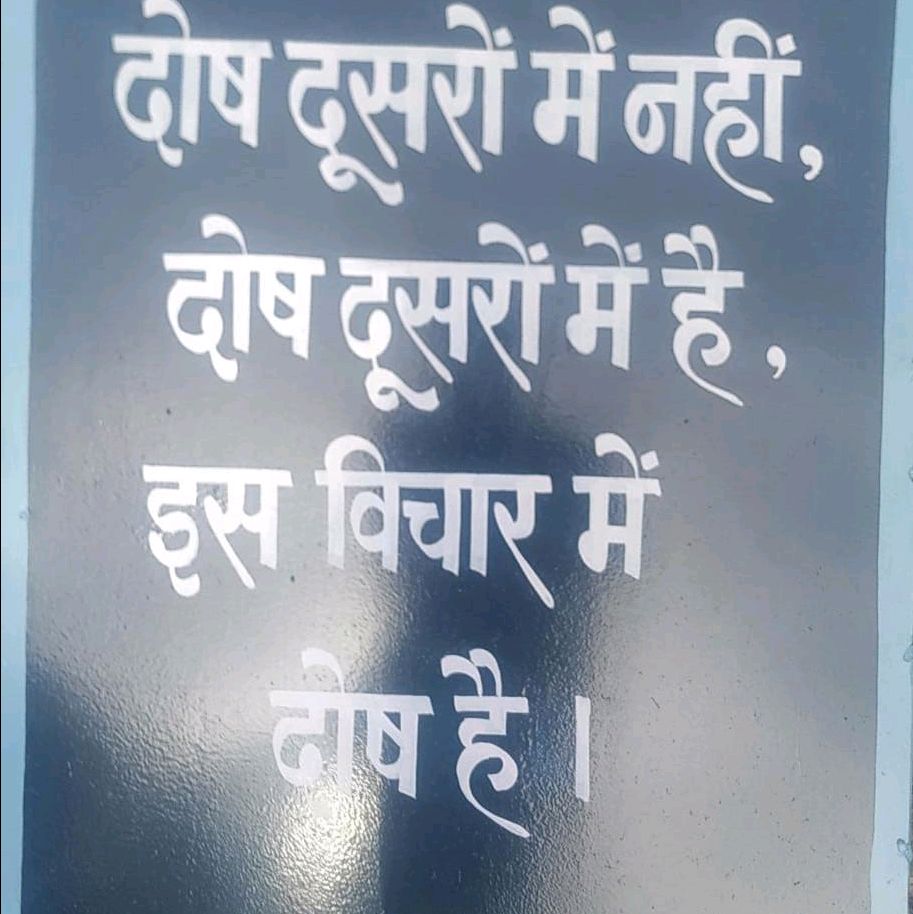 दोष दूसरों में नहीं,
दोष दूसरों में है,
इस विचार में
दोष है।